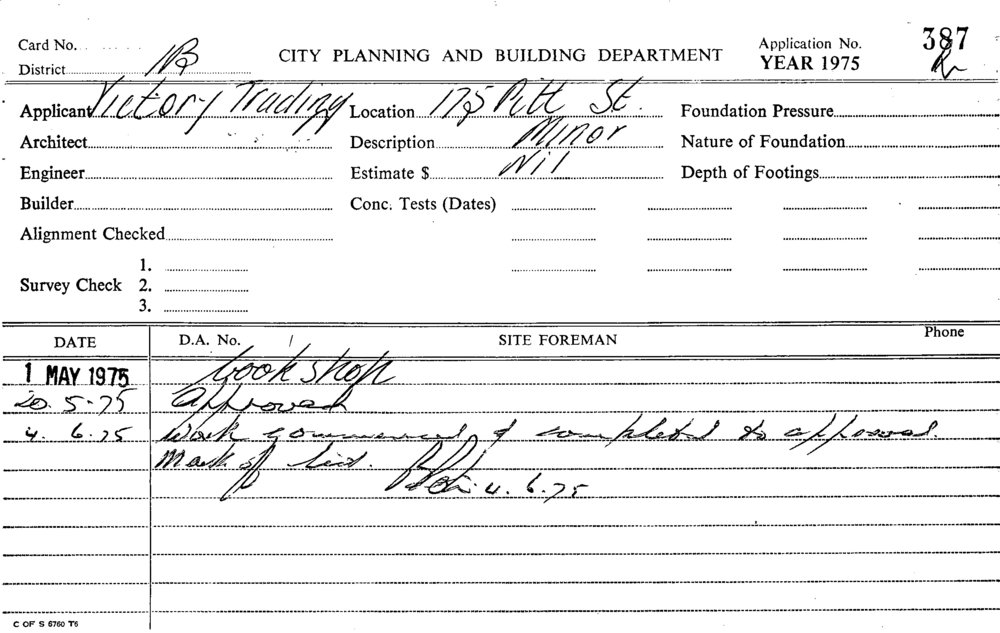 Card No.
CITY PLANNING AND BUILDING DEPARTMENT
Application No. 387
District 1B
YEAR 1975
Applicant Victory Trading Location 175 Pitt St. Foundation Pressure
Architect Description Minor Nature of Foundation
Engineer Estimate $ Nil Depth of Footings
Builder Conc. Tests (Dates)
Alignment Checked
1.
Survey Check 2.
3.
DATE D.A. No. SITE FOREMAN Phone
1 MAY 1975 bookshop
20.5.75 Approved
4.6.75 Work commenced & completed to approval.
Mark off list. 4.6.75
C OF S 6760 T6